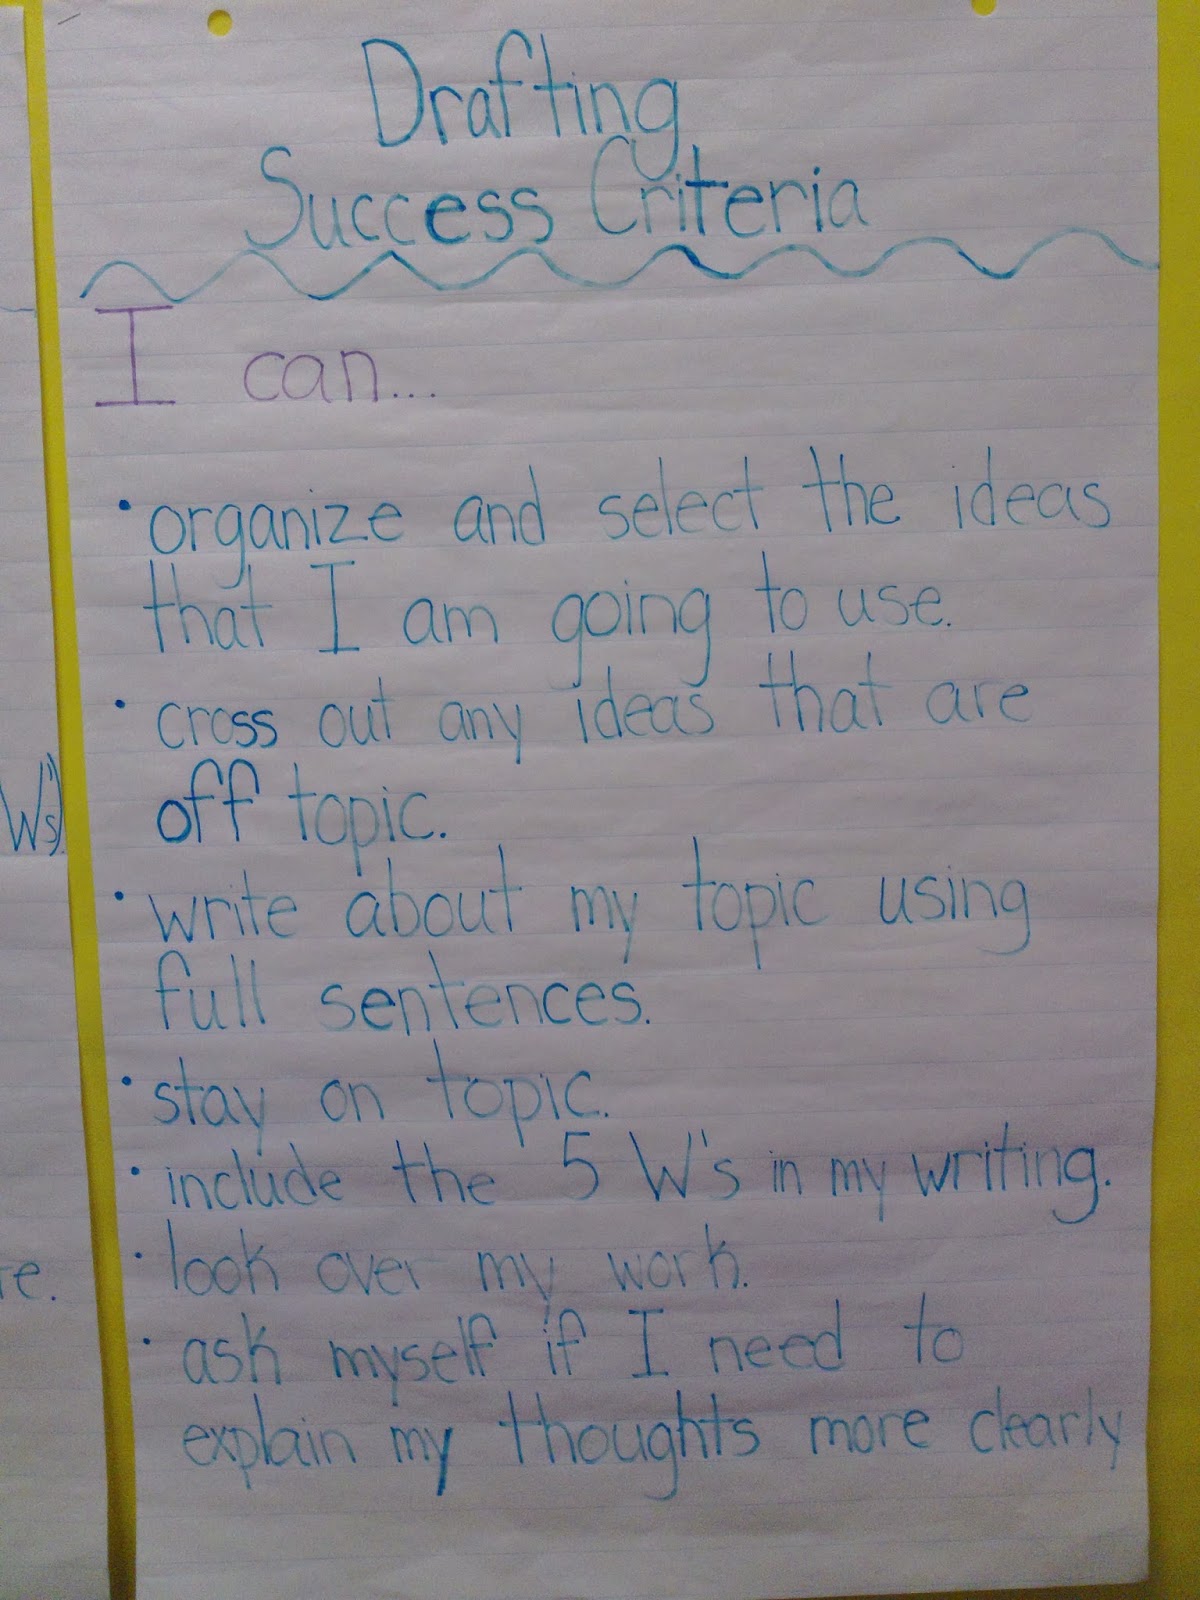 Drafting
Success Criteria
I can...
• organize and select the ideas
that I am going to use.
• cross out any ideas that are
off topic.
• write about my topic using
full sentences.
• stay on topic.
• include the 5 W's in my writing.
• look over my work.
• ask myself if I need to
explain my thoughts more clearly
W's)